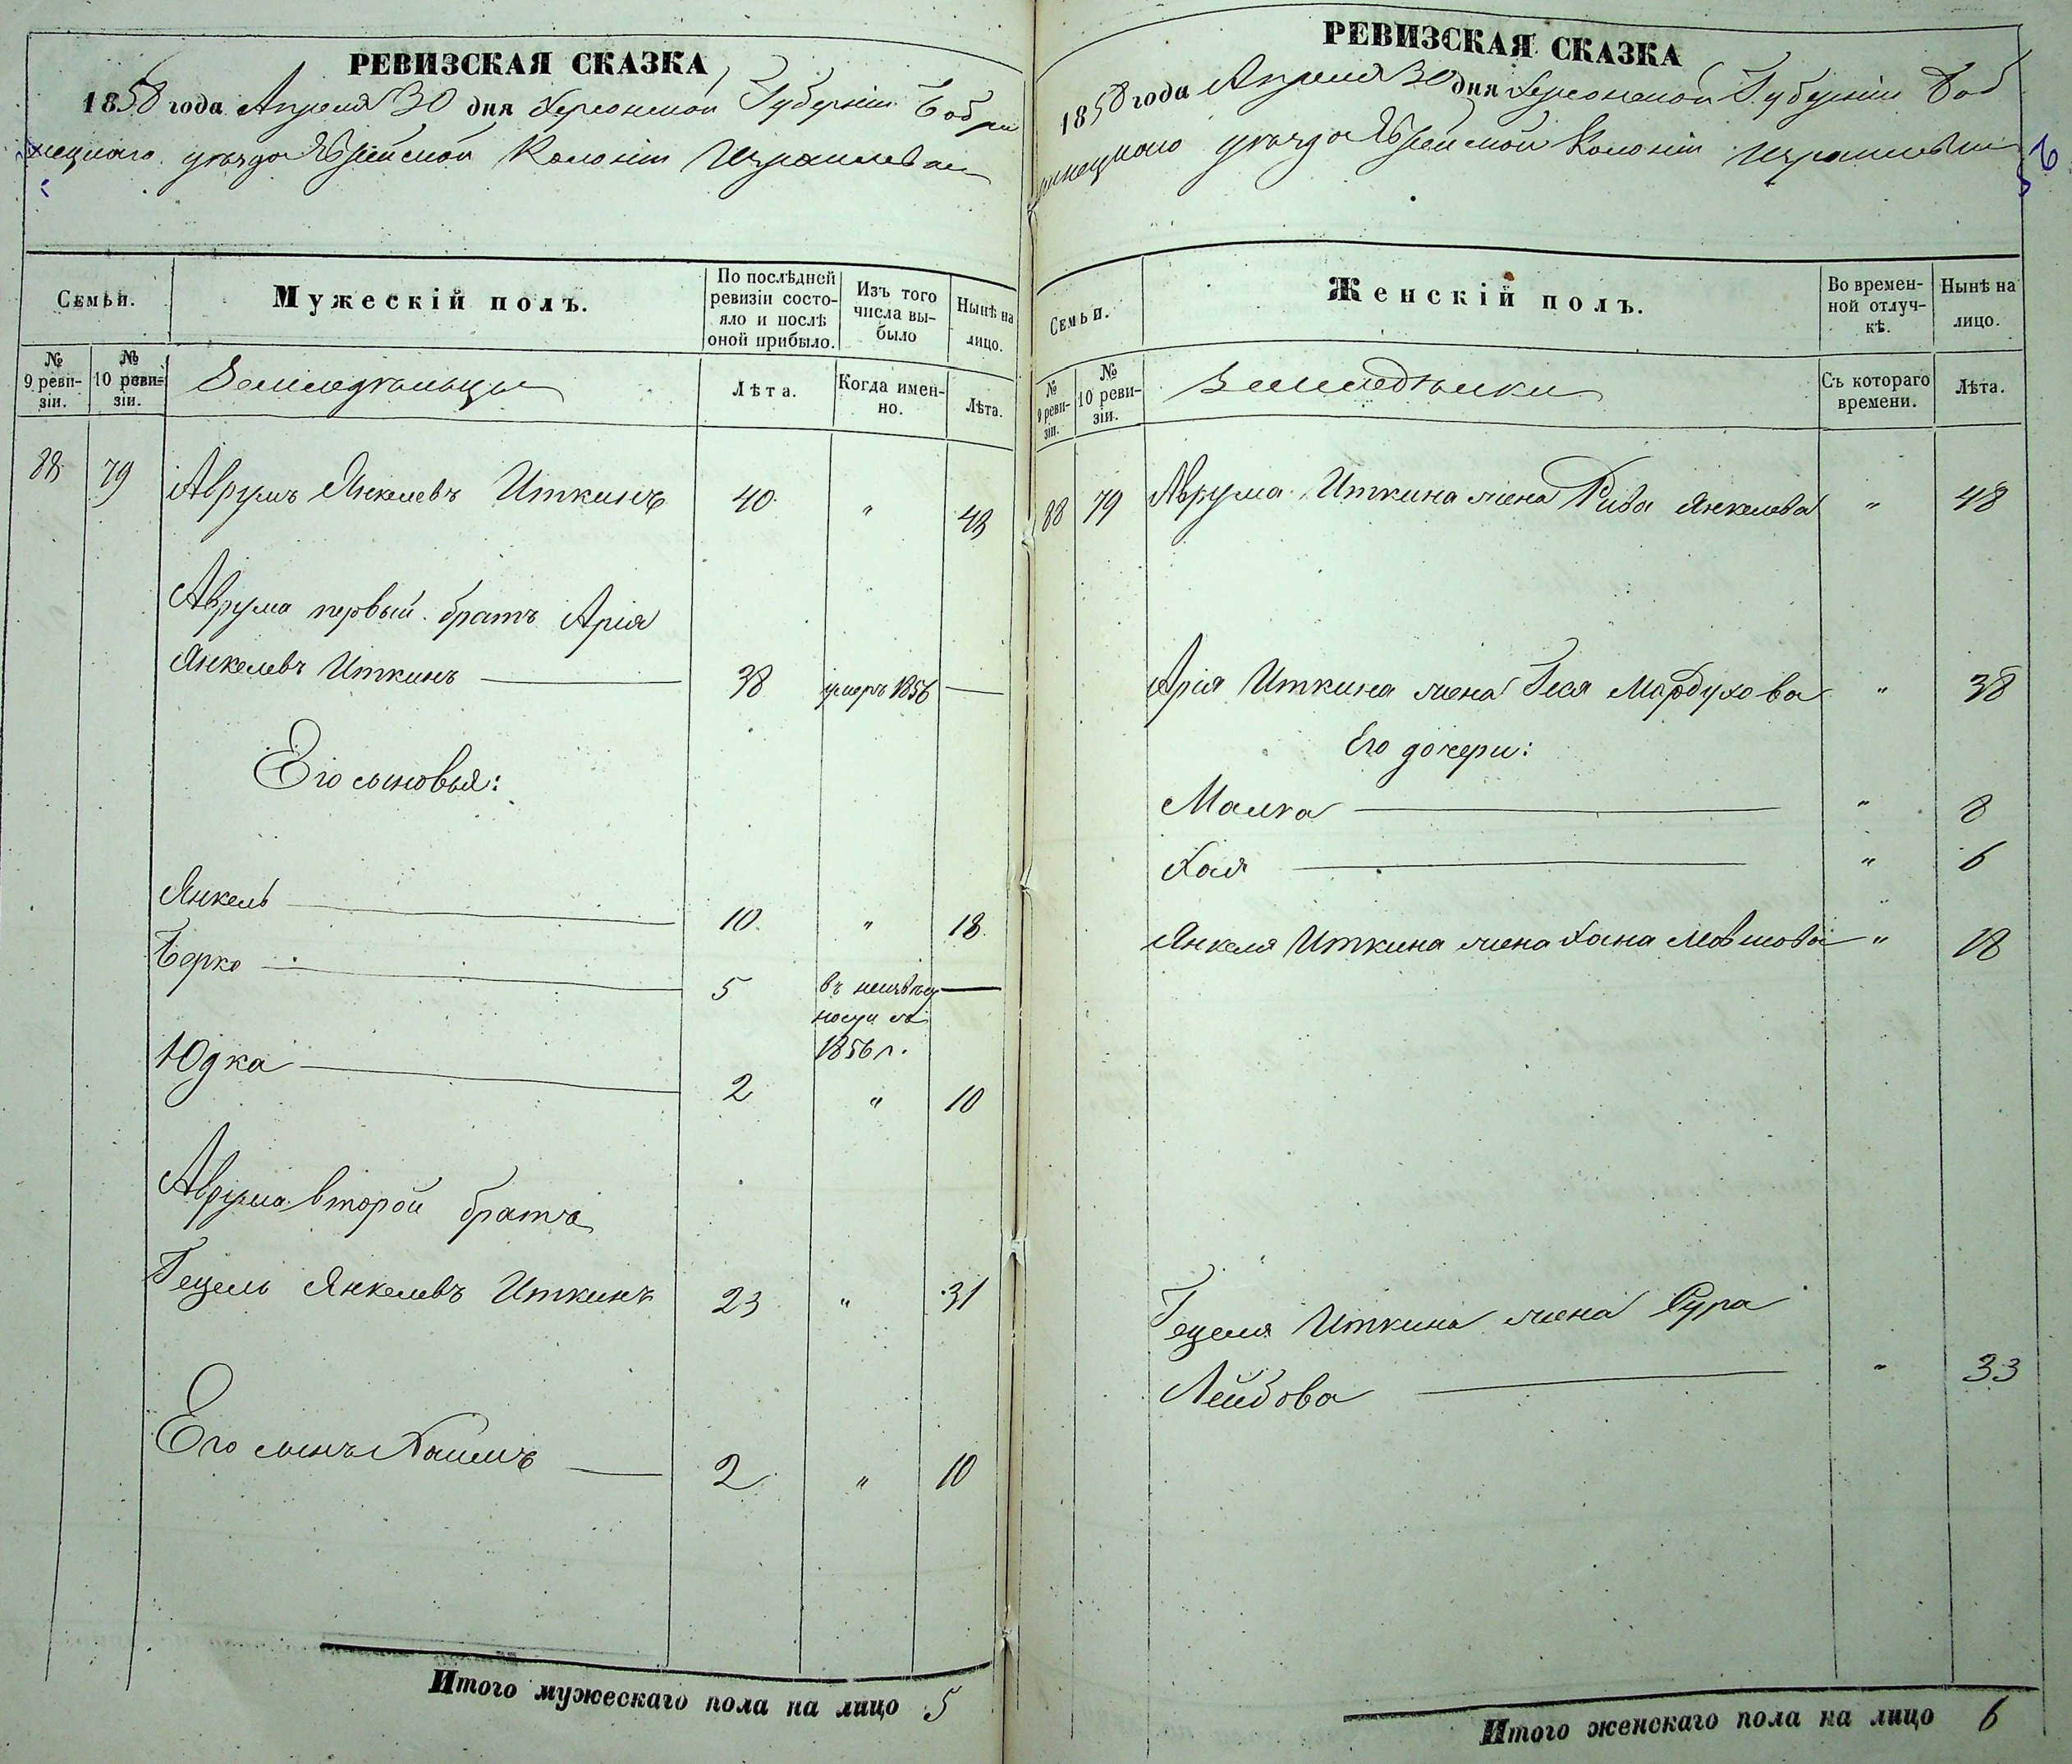 РЕВИЗСКАЯ СКАЗКА
1858 года Апреля 30 дня Херсонской Губерніи Бобри
нецкаго уѣзда Еврейской Колоніи Израилевки
Семьи.
Мужескій полъ.
По послѣдней
ревизіи состо-
яло и послѣ
оной прибыло.
Изъ того
числа вы-
было
Нынѣ на
лицо.
№
9 реви-
зіи.
№
10 реви-
зіи.
Земледѣльцы
Лѣта.
Когда имен-
но.
Лѣта.
88 79 Аврумъ Янкелевъ Иткинъ 40 " 48
Аврума первый братъ Арія
Янкелевъ Иткинъ 38 умеръ 1856
Его сыновья:
Янкель 10 " 18
Берко 5 въ неизвѣст
ности съ
1856 г.
Юдка 2 " 10
Аврума второй братъ
Гецель Янкелевъ Иткинъ 23 " 31
Его сынъ Хаимъ 2 " 10
Итого мужескаго пола на лицо 5
РЕВИЗСКАЯ СКАЗКА
1858 года Апреля 30 дня Херсонской Губерніи Боб
ринецкаго уѣзда Еврейской Колоніи Израилевки
Семьи.
Женскій полъ.
Во времен-
ной отлуч-
кѣ.
Нынѣ на
лицо.
№
9 реви-
зіи.
№
10 реви-
зіи.
Съ котораго
времени.
Лѣта.
88 79 Аврума Иткина жена Рива Янкелева " 48
Арія Иткина жена Геся Мордухова " 38
Его дочери:
Малка " 8
Хая " 6
Янкеля Иткина жена Хана Мовшова " 18
Гецеля Иткина жена Сура
Лейбова " 33
Итого женскаго пола на лицо 6